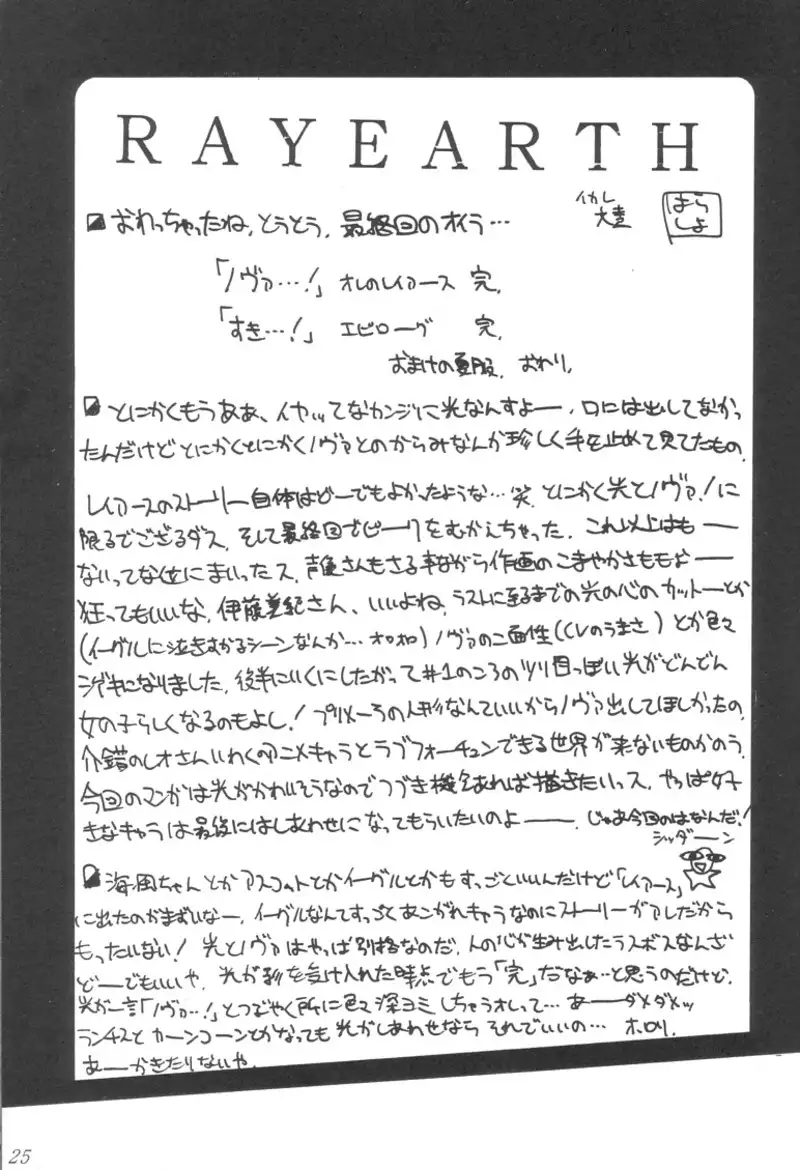 RAYEARTH
イカレ大吉 はらしょ
おわっちゃったね、とうとう、最終回のオイラ…
「ノヴァ…!」オレのレイアース 完、
「すき…!」エピローグ 完、
おまけの夏服、おわり、
とにかくもうああ、イヤッてなカンジに光なんすよー、口には出してなかっ
たんだけどとにかくとにかくノヴァとのからみなんか珍しく手を止めて見てたもの、
レイアースのストーリー自体はどーでもよかったような…笑、とにかく光とノヴァ!に
限るでござるダス、そして最終回でピークをむかえちゃった、これ以上はも――
ないってな位にまいったス、声優さんもさる事ながら作画のこまやかさももぉ――
狂ってもいいな、伊藤美紀さん、いいよね、ラストに至るまでの光の心のカットーとか
(イーグルに泣きすがるシーンなんか…オロオロ)ノヴァの二面性(CVのうまさ)とか色々
シゲキになりました、後半にいくにしたがって#1のころのツリ目っぽい光がどんどん
女の子らしくなるのもよし!プリメーラの人形なんていいからノヴァ出してほしかったの、
介錯のしオさんいわくのアニメキャラとラブフォーチュンできる世界が来ないものかのう、
今回のマンガは光がかわいそうなのでつづき機会あれば描きたいッス、やっぱ好
きなキャラは最後にはしあわせになってもらいたいのよ――、じゃあ今回のはなんだ!
ジッダーン
海風ちゃんとかアスコットとかイーグルとかもすっごといいんだけど「レイアース」
に出たのがまずいなー、イーグルなんてすっごくあこがれキャラなのにストーリーがアレだから
もったいない! 光とノヴァはやっぱ別格なのだ、人の心が生み出したラスボスなんざ
どーでもいいや、光が影を受け入れた時点でもう「完」だなぁ…と思うのだけど、
光が一言「ノヴァ…!」とつぶやく所に色々深ヨミしちゃうオレって…あ――ダメダメッ
ランティスとカーンコーンとかなっても光がしあわせならそれでいいの…ホロリ、
あ――かきたりないや、
25